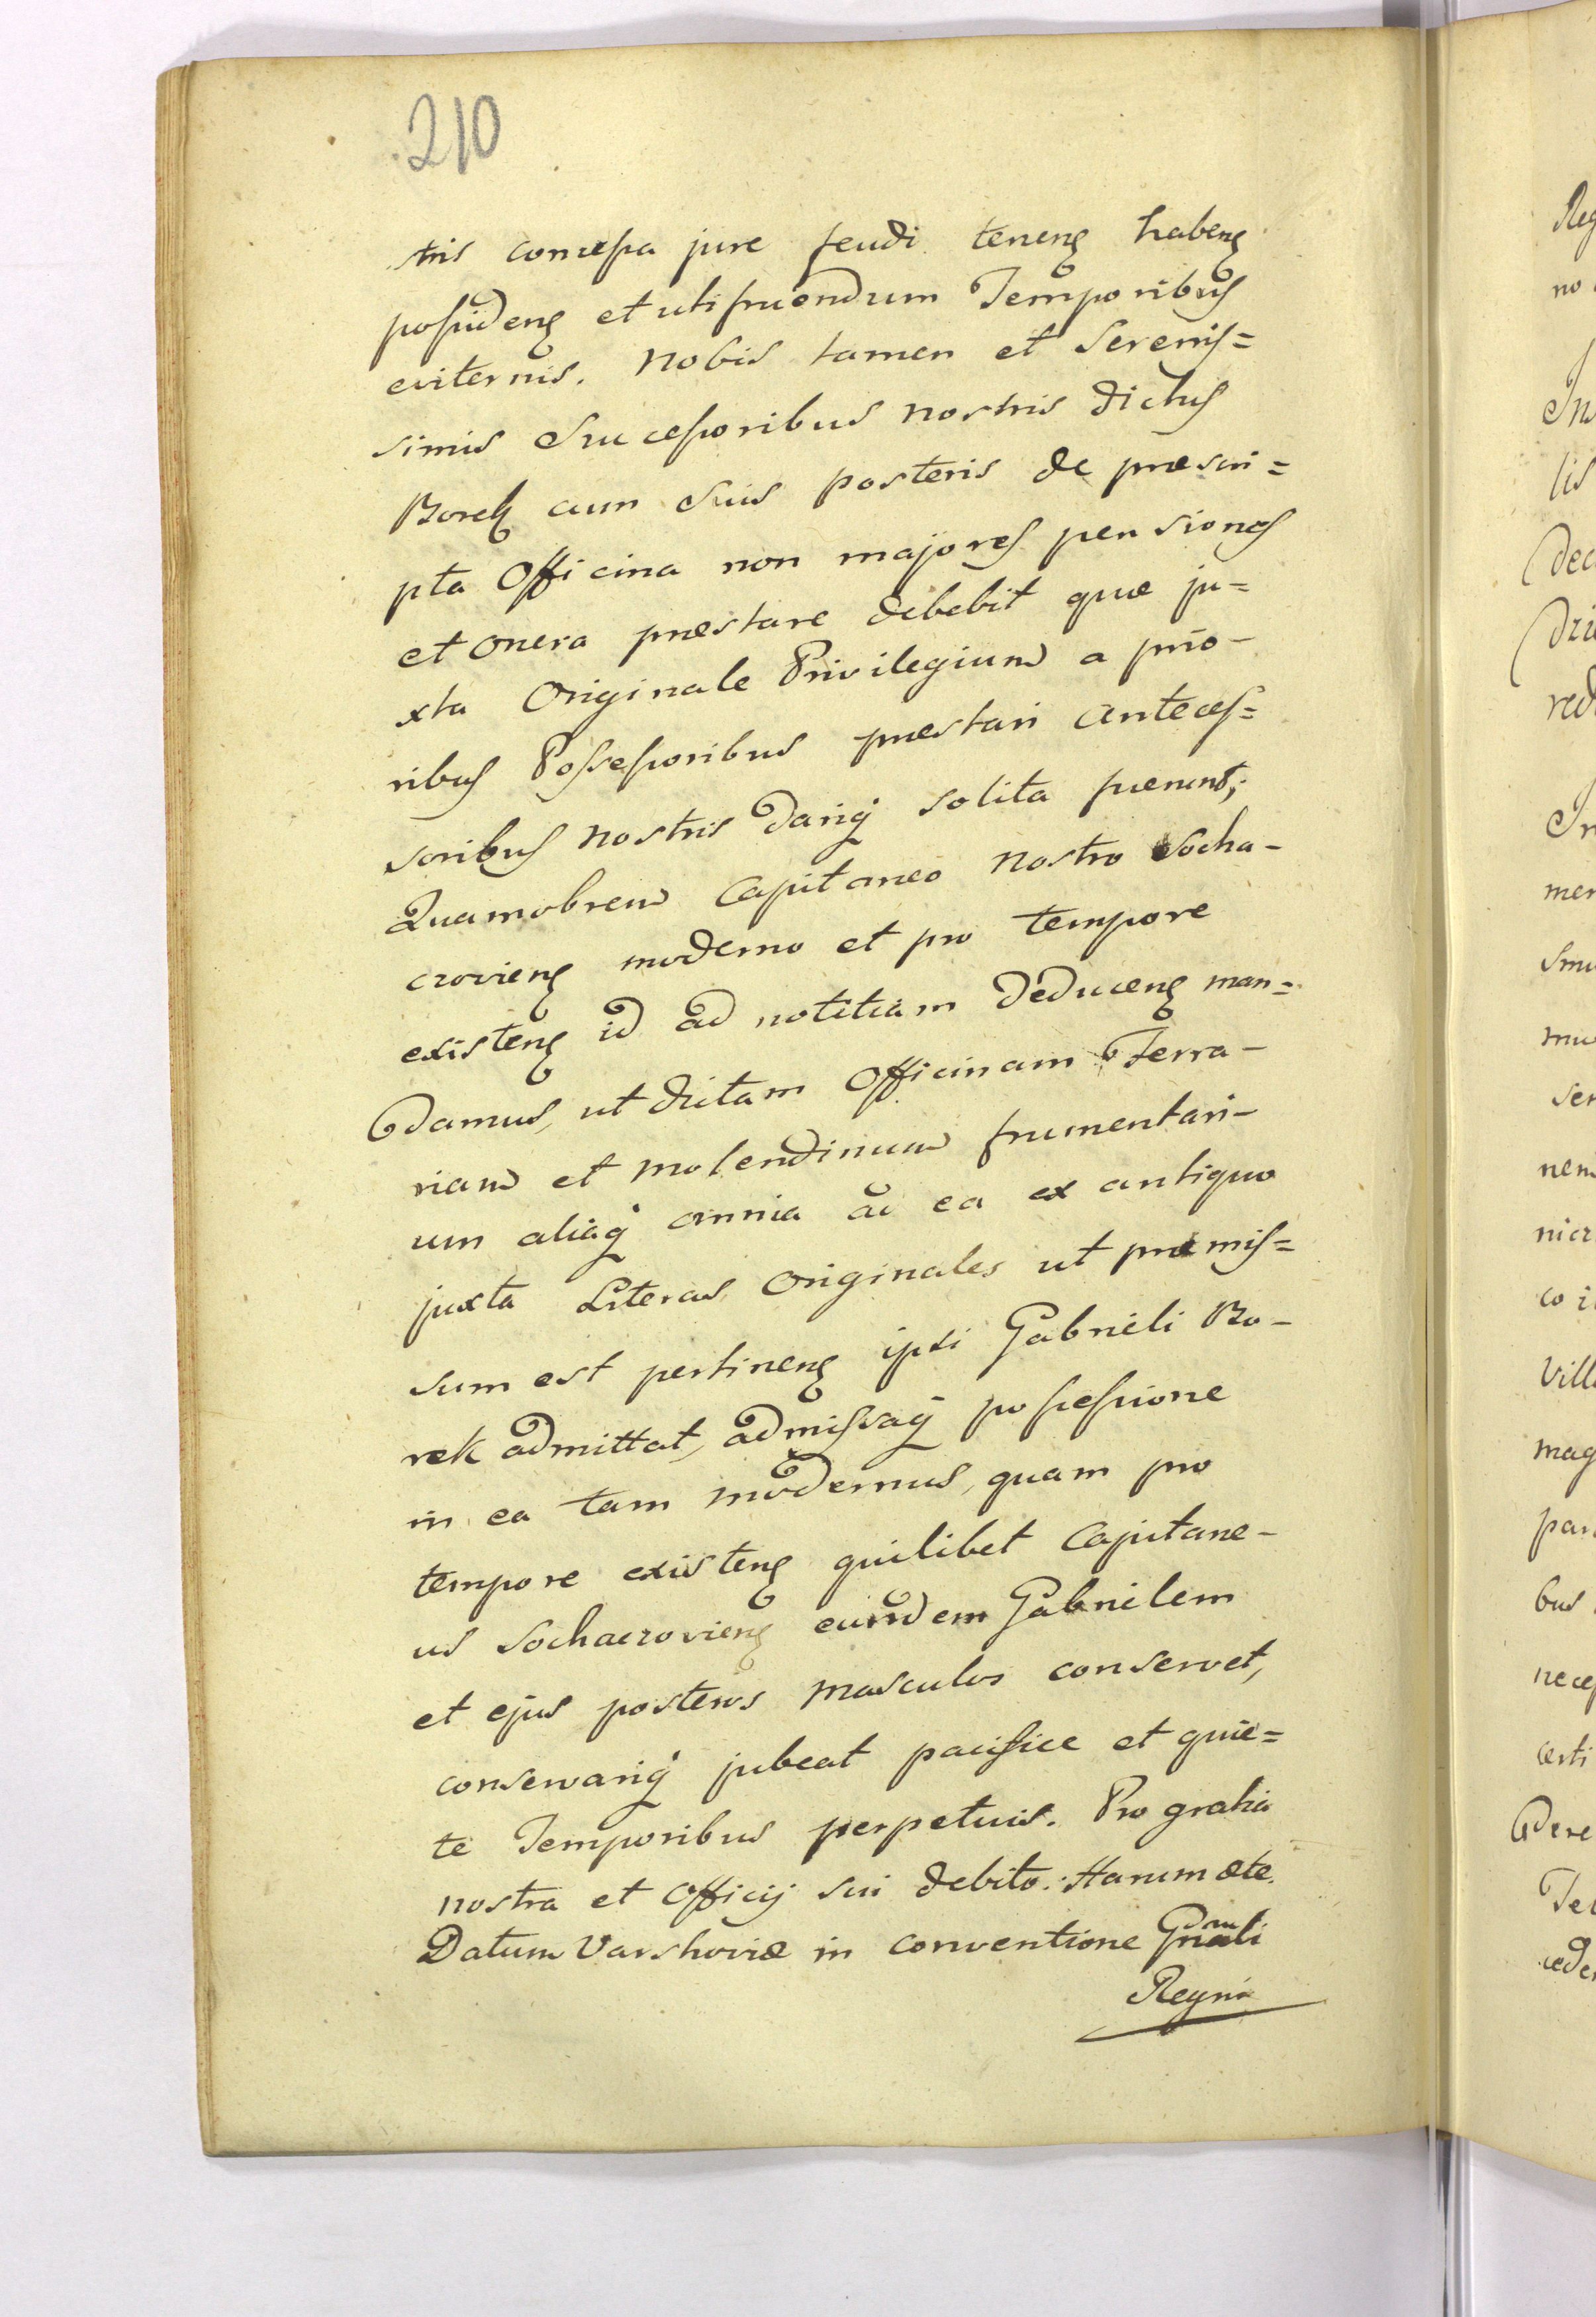 210
stris concessa jure feudi tenenꝫ habenꝫ
possidenꝫ et utifruendum Temporibus
eviternis. Nobis tamen et Serenis=
simis Successoribus nostris dictus
Borek cum suis posteris de præscri=
pta Officina non majores pensiones
et onera præstare debebit quæ ju=
xta Originale Privilegium a prio-
ribus Possessoribus præstari Anteces=
soribus nostris Dariq̃ solita fuerunt;
Quamobrem Capitaneo Nostro Socha-
czovienꝫ moderno et pro tempore
existenꝫ id ad notitiam deducenꝫ man=
damus, ut dictam Officinam Ferra-
riam et Molendinum frumentari-
um aliaq̃ omnia ad ea ex antiquo
juxta Literas Originales ut præmis=
sum est pertinenꝫ ipsi Gabrieli Bo-
rek admittat, admissaq̃ possessione
in ea tam modernus, quam pro
tempore existenꝫ quilibet Capitane-
us Sochaczovienꝫ eundem Gabrielem
et ejus posteros masculos conservet,
conservariq̃ jubeat pacifice et quie=
te Temporibus perpetuis. Pro gratia
nostra et Officij sui debito. Harum etc.
Datum Varshoviæ in conventione Gnali
Regni
Reg
no
In
lis
dec
dri
red
In
mer
smu
mu
ser
nem
nicz
co i
Vill
mag
par
bus
neces
certi
Dere
Te
cede